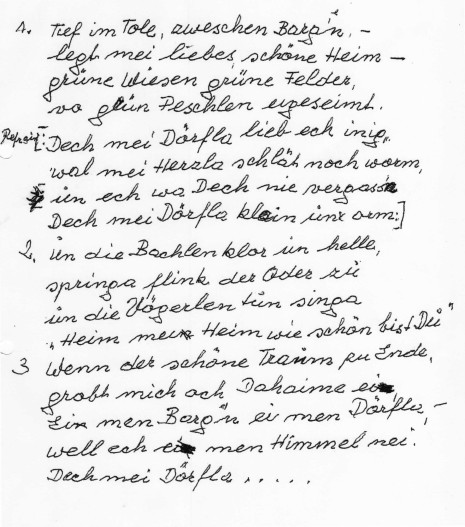 1. Tief im Tole, zweschen Barg'n, -
legt mei liebes, schöne Heim -
grüne Wiesen grüne Felder,
vo grün Peschlen eigeseimt.
Refrain [: Dech mei Dörfla lieb ech inig,
wal mei Herzla schlät noch worm,
ün ech wa Dech nie vergassa
Dech mei Dörfla klein ün orm:]
2. ün die Bachlen klor ün helle,
springa flink der Oder zü
ün die Vögerlen tün singa
"Heim mein Heim wie schön bist Dü"
3 Wenn der schöne Traum zu Ende,
grobt mich och Dahaime
Ein men Barg'n ei men Dörfla, -
well ech men Himmel nei.
Dech mei Dörfla . . . . .